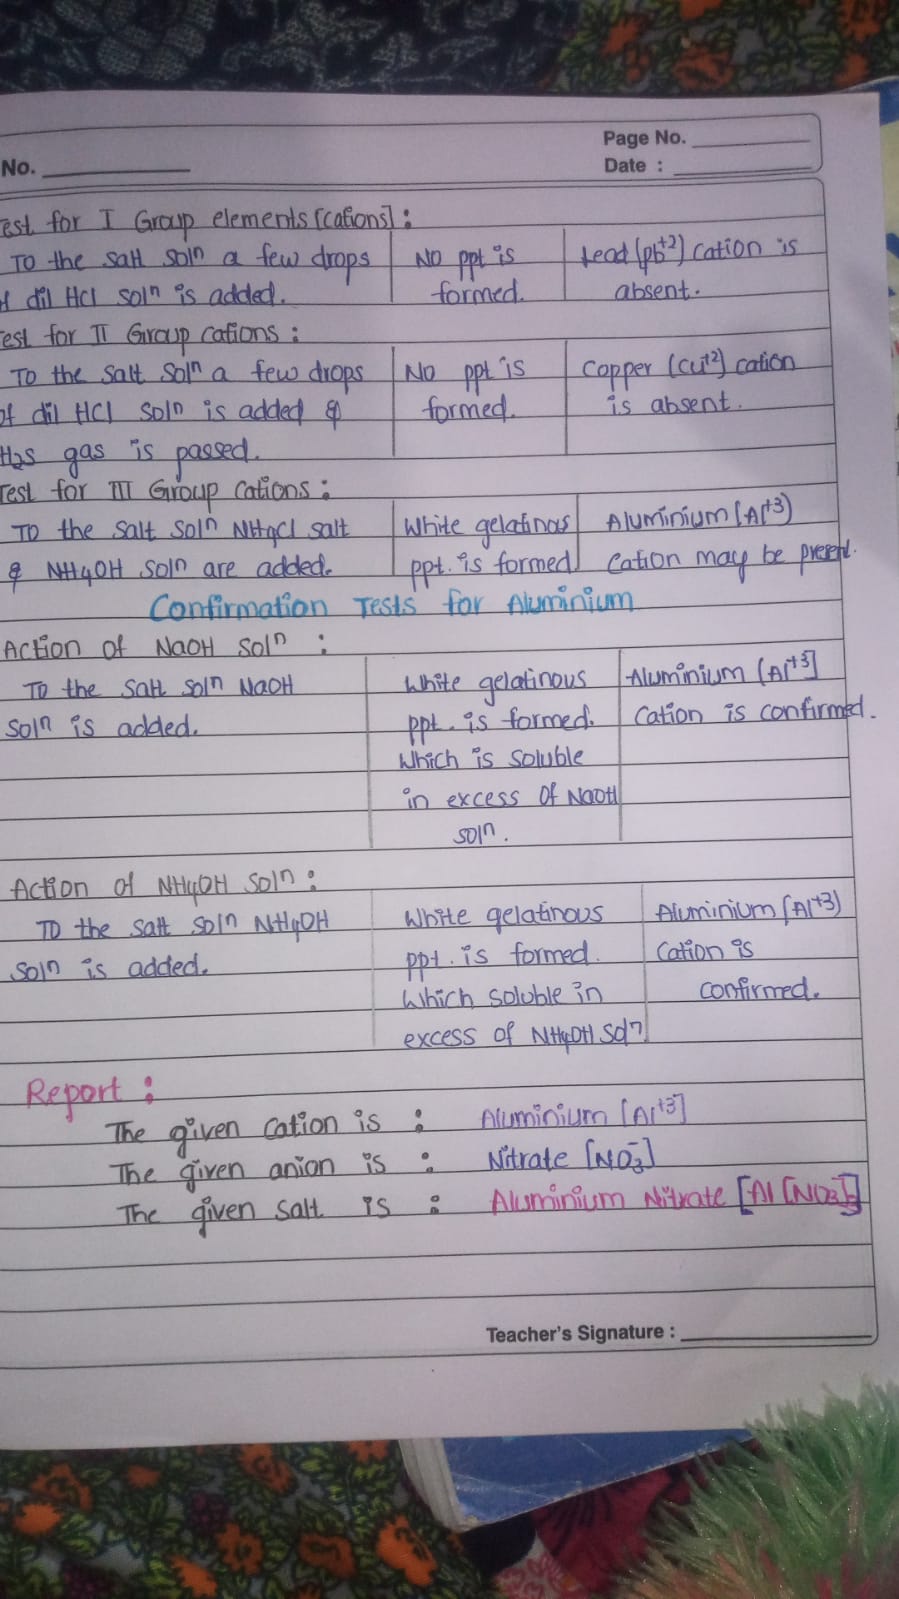 Page No.
No.
Date :
est for I Group elements [cations] :
To the salt soln a few drops No ppt is Lead (pb+2) cation is
f dil HCl soln is added. formed. absent.
est for II Group cations :
To the salt soln a few drops No ppt is Copper (Cu+2) cation
of dil HCl soln is added & formed. is absent.
H2s gas is passed.
Test for III Group cations :
To the salt soln NH4Cl salt White gelatinous Aluminium (Al+3)
& NH4OH soln are added. ppt. is formed Cation may be present.
Confirmation Tests for Aluminium
Action of NaOH soln :
To the salt soln NaOH White gelatinous Aluminium [Al+3]
soln is added. ppt. is formed. Cation is confirmed.
Which is soluble
in excess of NaOH
soln.
Action of NH4OH soln :
To the salt soln NH4OH White gelatinous Aluminium (Al+3)
soln is added. ppt. is formed. Cation is
Which soluble in confirmed.
excess of NH4OH soln
Report :
The given cation is : Aluminium [Al+3]
The given anion is : Nitrate [NO3-]
The given salt is : Aluminium Nitrate [Al [NO3]3]
Teacher's Signature :